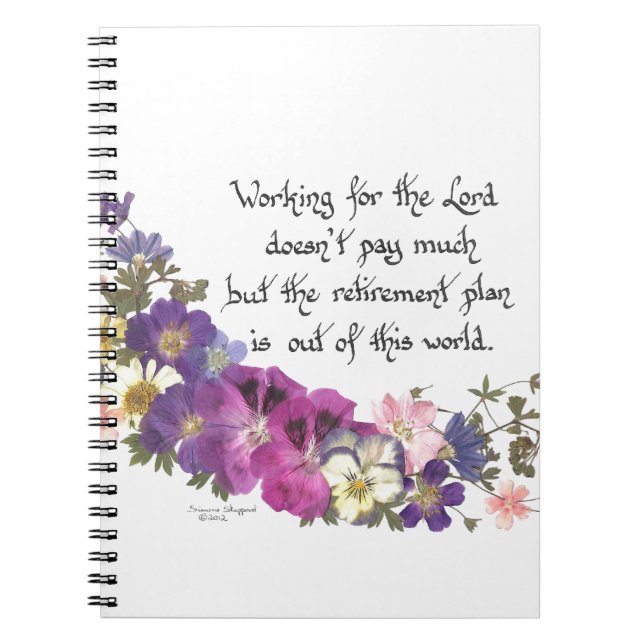 Working for the Lord
doesn't pay much
but the retirement plan
is out of this world.
Simone Sheppard
©2012